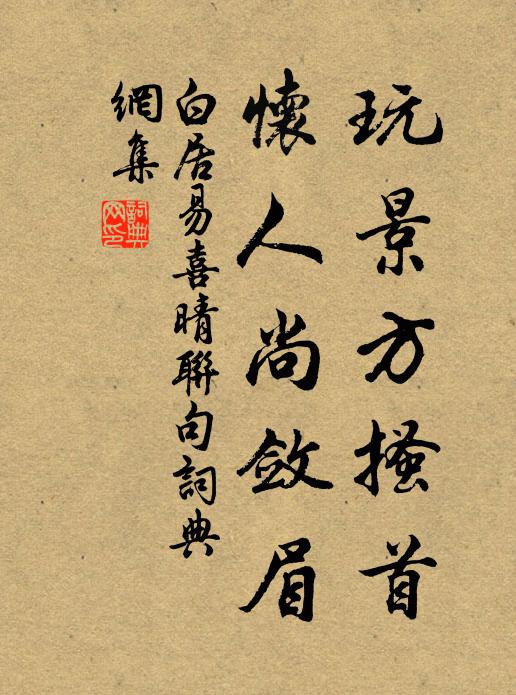 玩景方搔首
懷人尚斂眉
白居易喜晴聯句詞典
網集
詞典網印